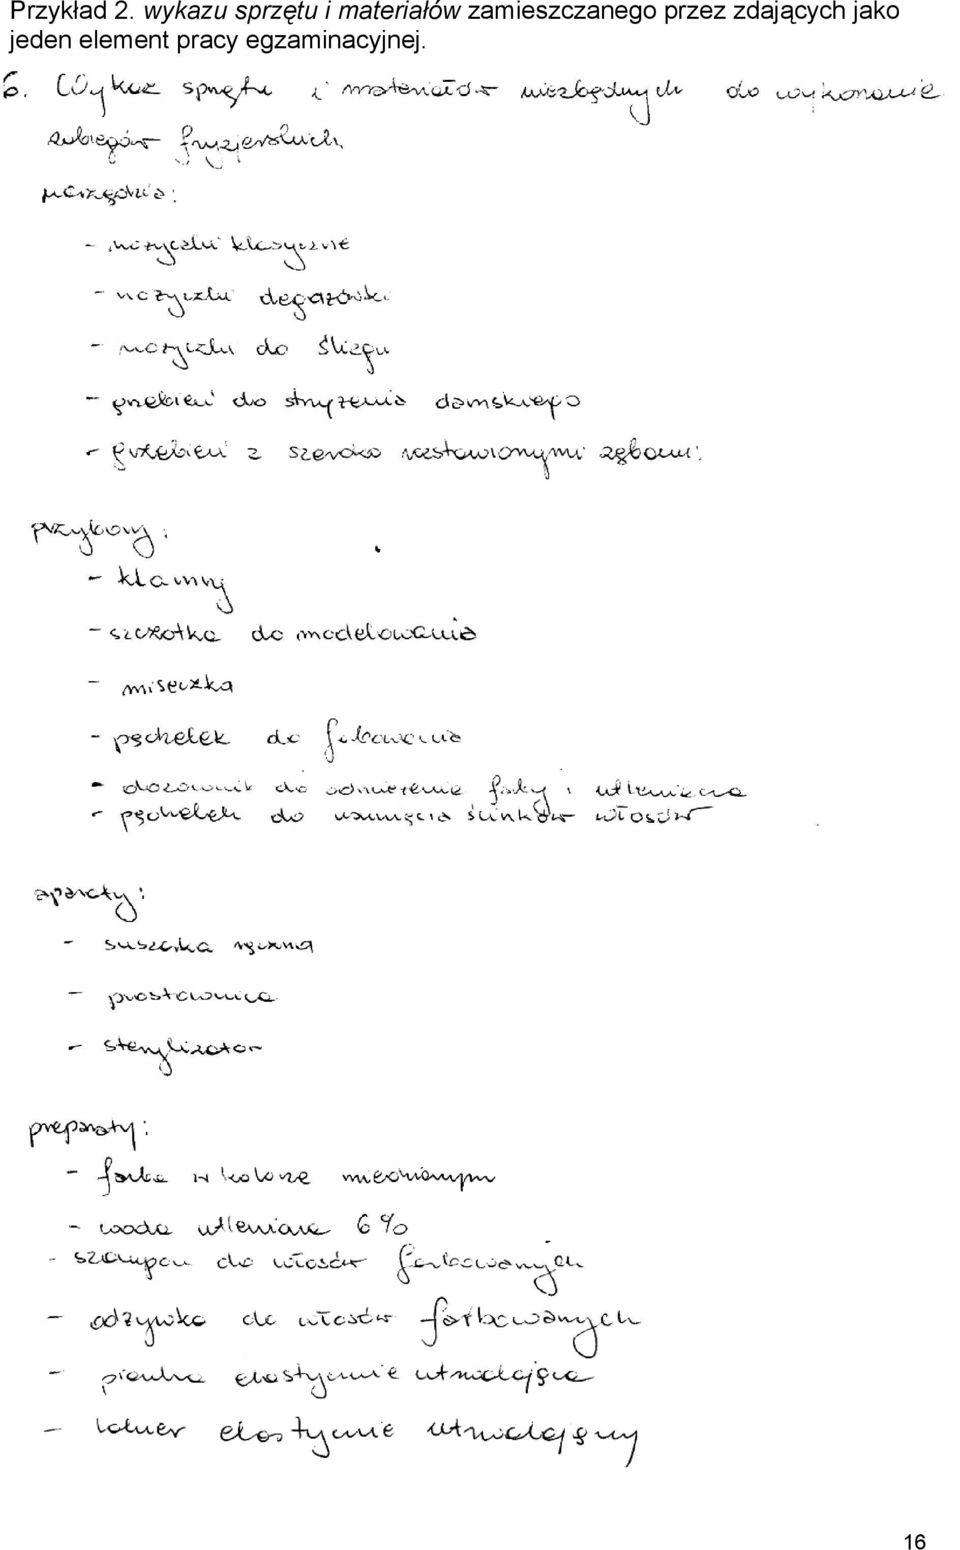 Przykład 2. wykazu sprzętu i materiałów zamieszczanego przez zdających jako
jeden element pracy egzaminacyjnej.
6. Wykaz sprzętu i materiałów niezbędnych do wykonanie
zabiegów fryzjerskich.
narzędzia:
- nożyczki klasyczne
- nożyczki degażówki
- nożyczki do ślizgu
- grzebień do strzyżenia damskiego
- grzebień z szeroko rozstawionymi zębami.
przybory:
- klamry
- szczotka do modelowania
- miseczka
- pędzelek do farbowania
- dozownik do odmierzenia farby i utleniacza
- pędzelek do usunięcia ścinków włosów
aparaty:
- suszarka ręczna
- prostownica
- sterylizator
preparaty:
- farba w kolorze miedzianym
- woda utleniana 6 %
- szampon do włosów farbowanych
- odżywka do włosów farbowanych
- pianka elastycznie utrwalająca
- lakier elastycznie utrwalający
16